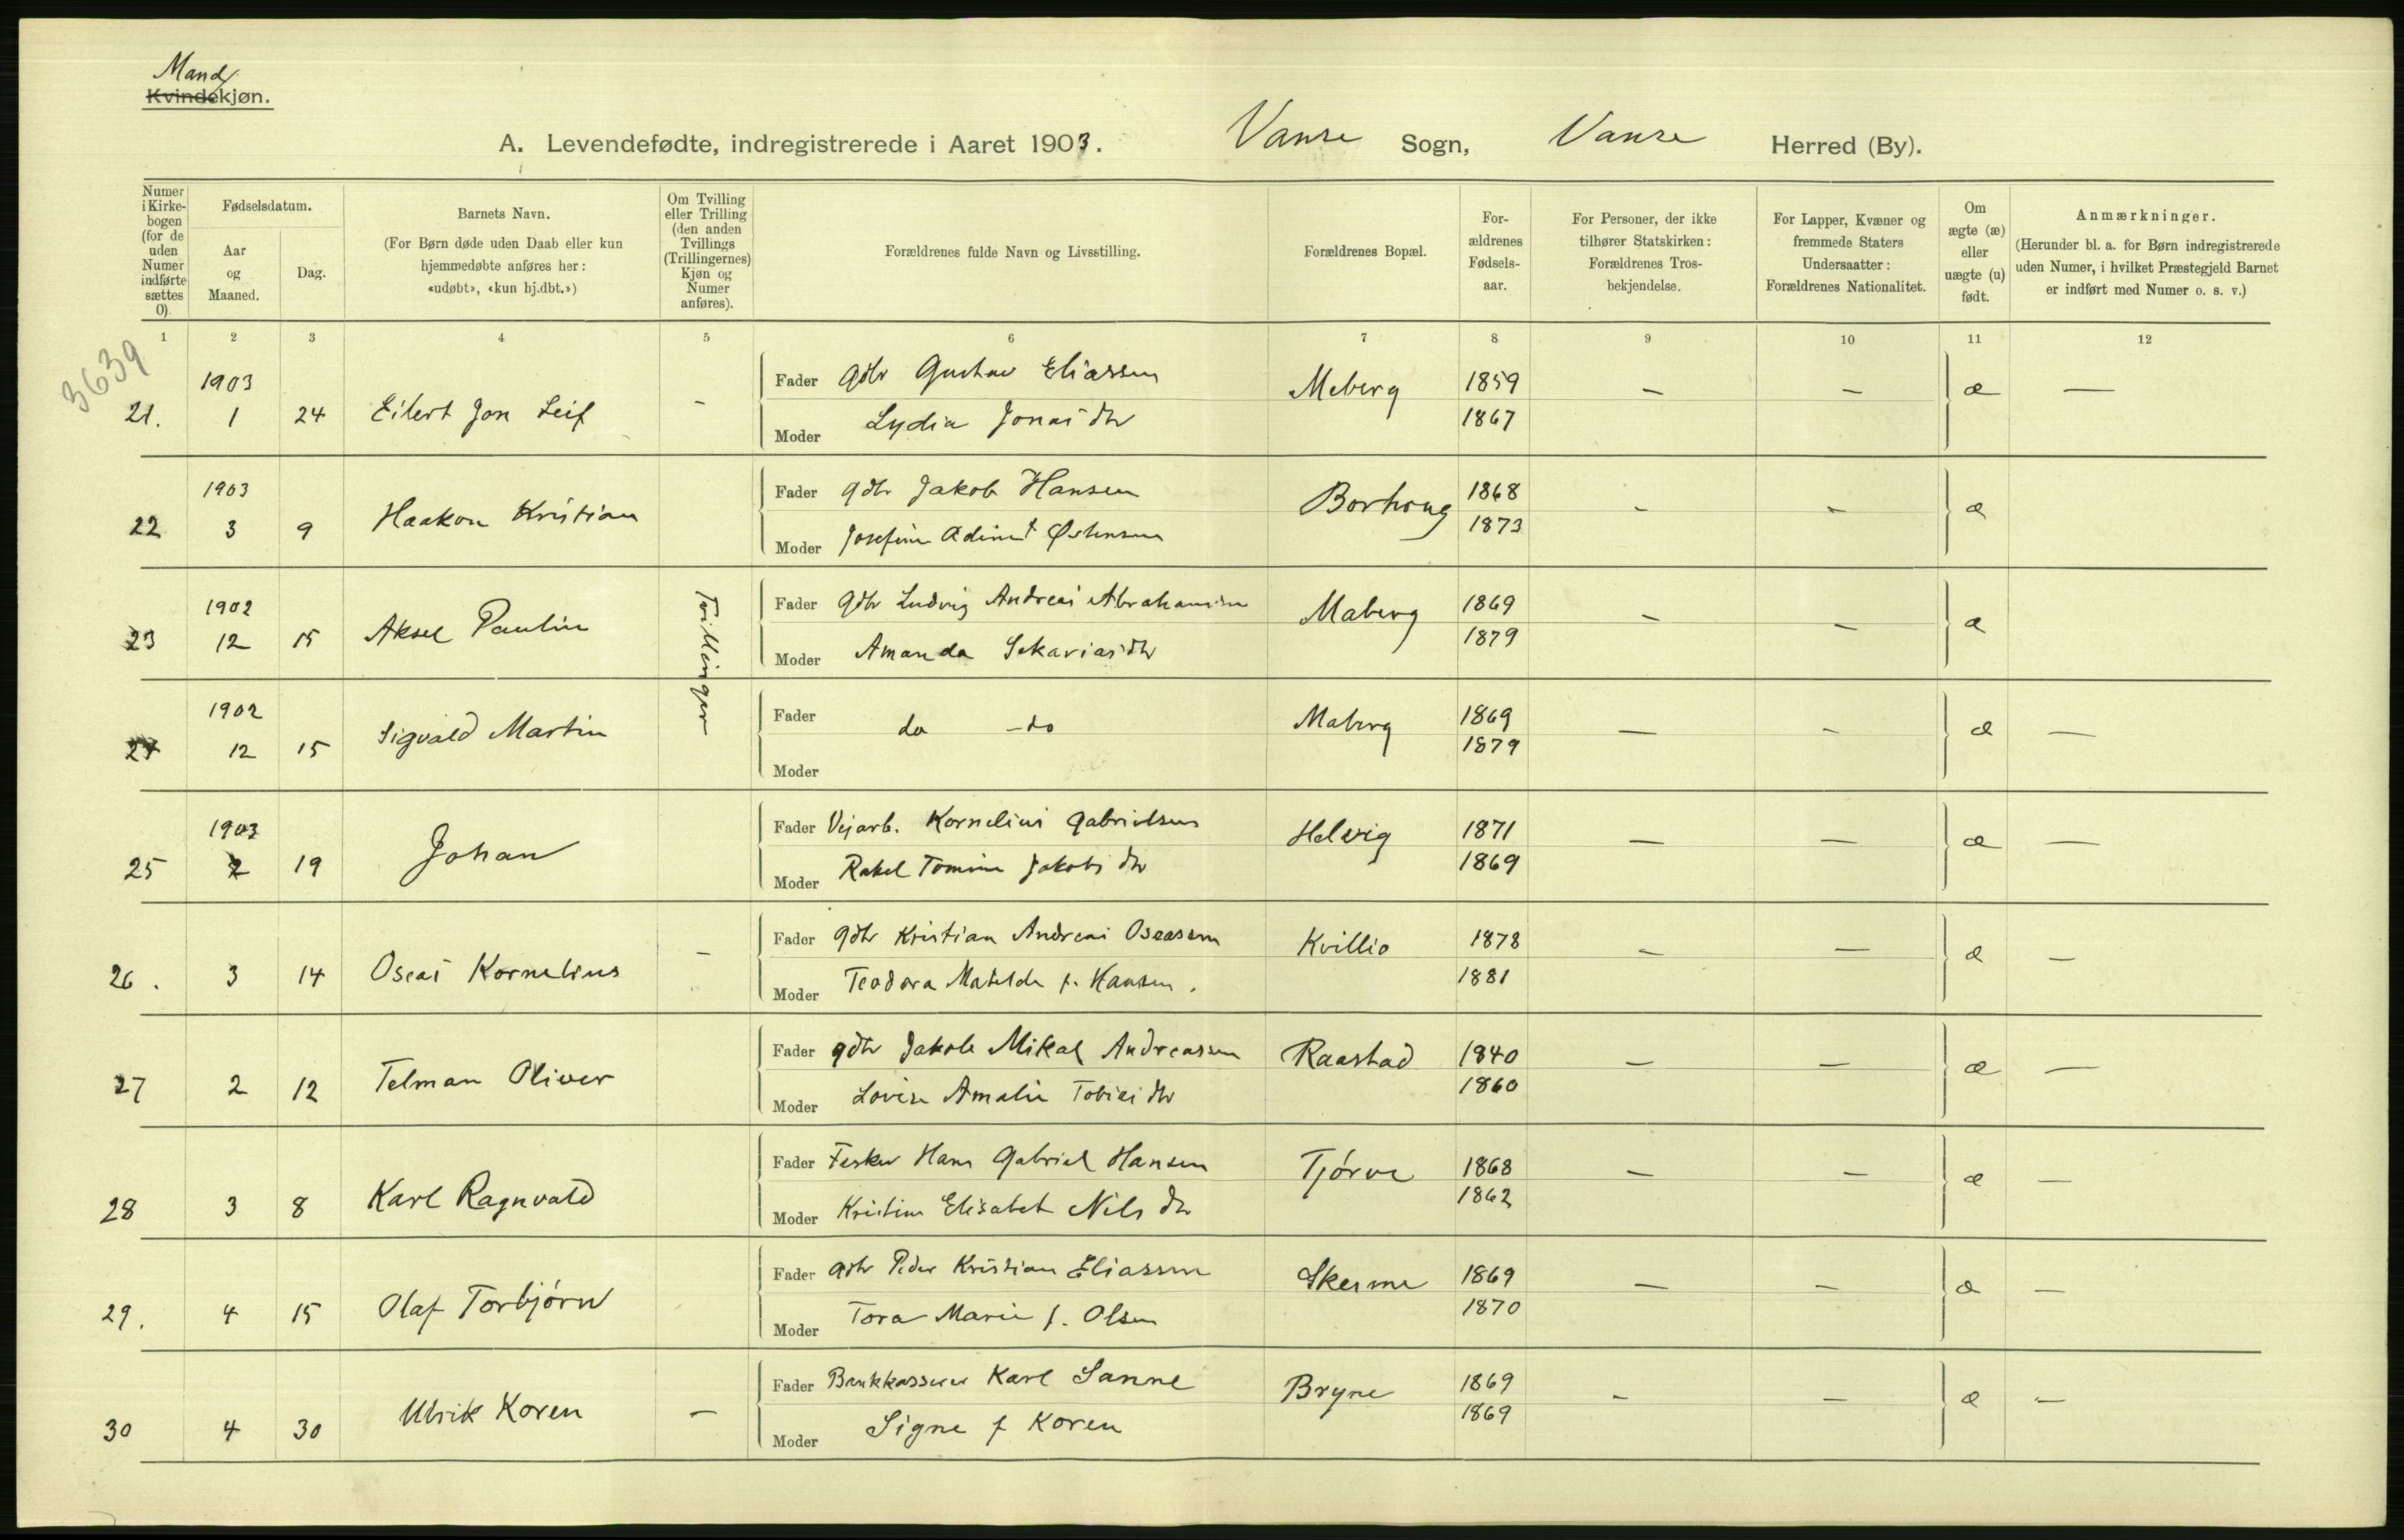 Mand
Kvindekjøn.
A. Levendefødte, indregistrerede i Aaret 1903. Vanse Sogn, Vanse Herred (By).
Numer i Kirkebogen (for de uden Numer indførte sættes 0)
Fødselsdatum.
Aar og Maaned.
Dag.
Barnets Navn.
(For Børn døde uden Daab eller kun hjemmedøbte anføres her: «udøbt», «kun hj.dbt.»)
Om Tvilling eller Trilling (den anden Tvillings (Trillingernes) Kjøn og Numer anføres).
Forældrenes fulde Navn og Livsstilling.
Forældrenes Bopæl.
Forældrenes Fødselsaar.
For Personer, der ikke tilhører Statskirken: Forældrenes Trosbekjendelse.
For Lapper, Kvæner og fremmede Staters Undersaatter: Forældrenes Nationalitet.
Om ægte (æ) eller uægte (u) født.
Anmærkninger.
(Herunder bl. a. for Børn indregistrerede uden Numer, i hvilket Præstegjeld Barnet er indført med Numer o. s. v.)
1 2 3 4 5 6 7 8 9 10 11 12
3639
1903 Fader Gdbr Gustav Eliassen Meberg 1859 — — æ —
21. 1 24 Eilert Jon Leif - Moder Lydia Jonasdtr 1867
1903 Fader gdbr Jakob Hansen Borhoug 1868 - - æ
22 3 9 Haakon Kristian Moder Josefine Adine f Østensen 1873
1902 Fader Gdbr Ludvig Andreas Abrahamsen Maberg 1869 - - æ
23 12 15 Aksel Paulin Tvillinger Moder Amanda Sakariasdtr 1879
1902 Fader do - do Maberg 1869 — - æ —
24 12 15 Sigvald Martin Moder 1879
1903 Fader Vejarb. Kornelius Gabrielsen Helvig 1871 — — æ —
25 2 19 Johan Moder Rakel Tomine Jakobsdtr 1869
Fader gdbr Kristian Andreas Oseassen Kvillio 1878 - — æ —
26. 3 14 Oseas Kornelius - Moder Teodora Matilde f. Hansen. 1881
Fader gdbr Jakob Mikal Andreassen Raastad 1840 — — æ —
27 2 12 Telman Oliver Moder Lovise Amalie Tobiasdtr 1860
Fader Fisker Hans Gabriel Hansen Tjørve 1868 — — æ —
28 3 8 Karl Ragnvald Moder Kristine Elisabet Nilsdtr 1862
Fader gdbr Peder Kristian Eliassen Skeime 1869 — - æ —
29. 4 15 Olaf Torbjørn Moder Tora Marie f. Olsen 1870
Fader Bankkasserer Karl Sanne Bryne 1869 - — æ —
30 4 30 Ulrik Koren — Moder Signe f Koren 1869